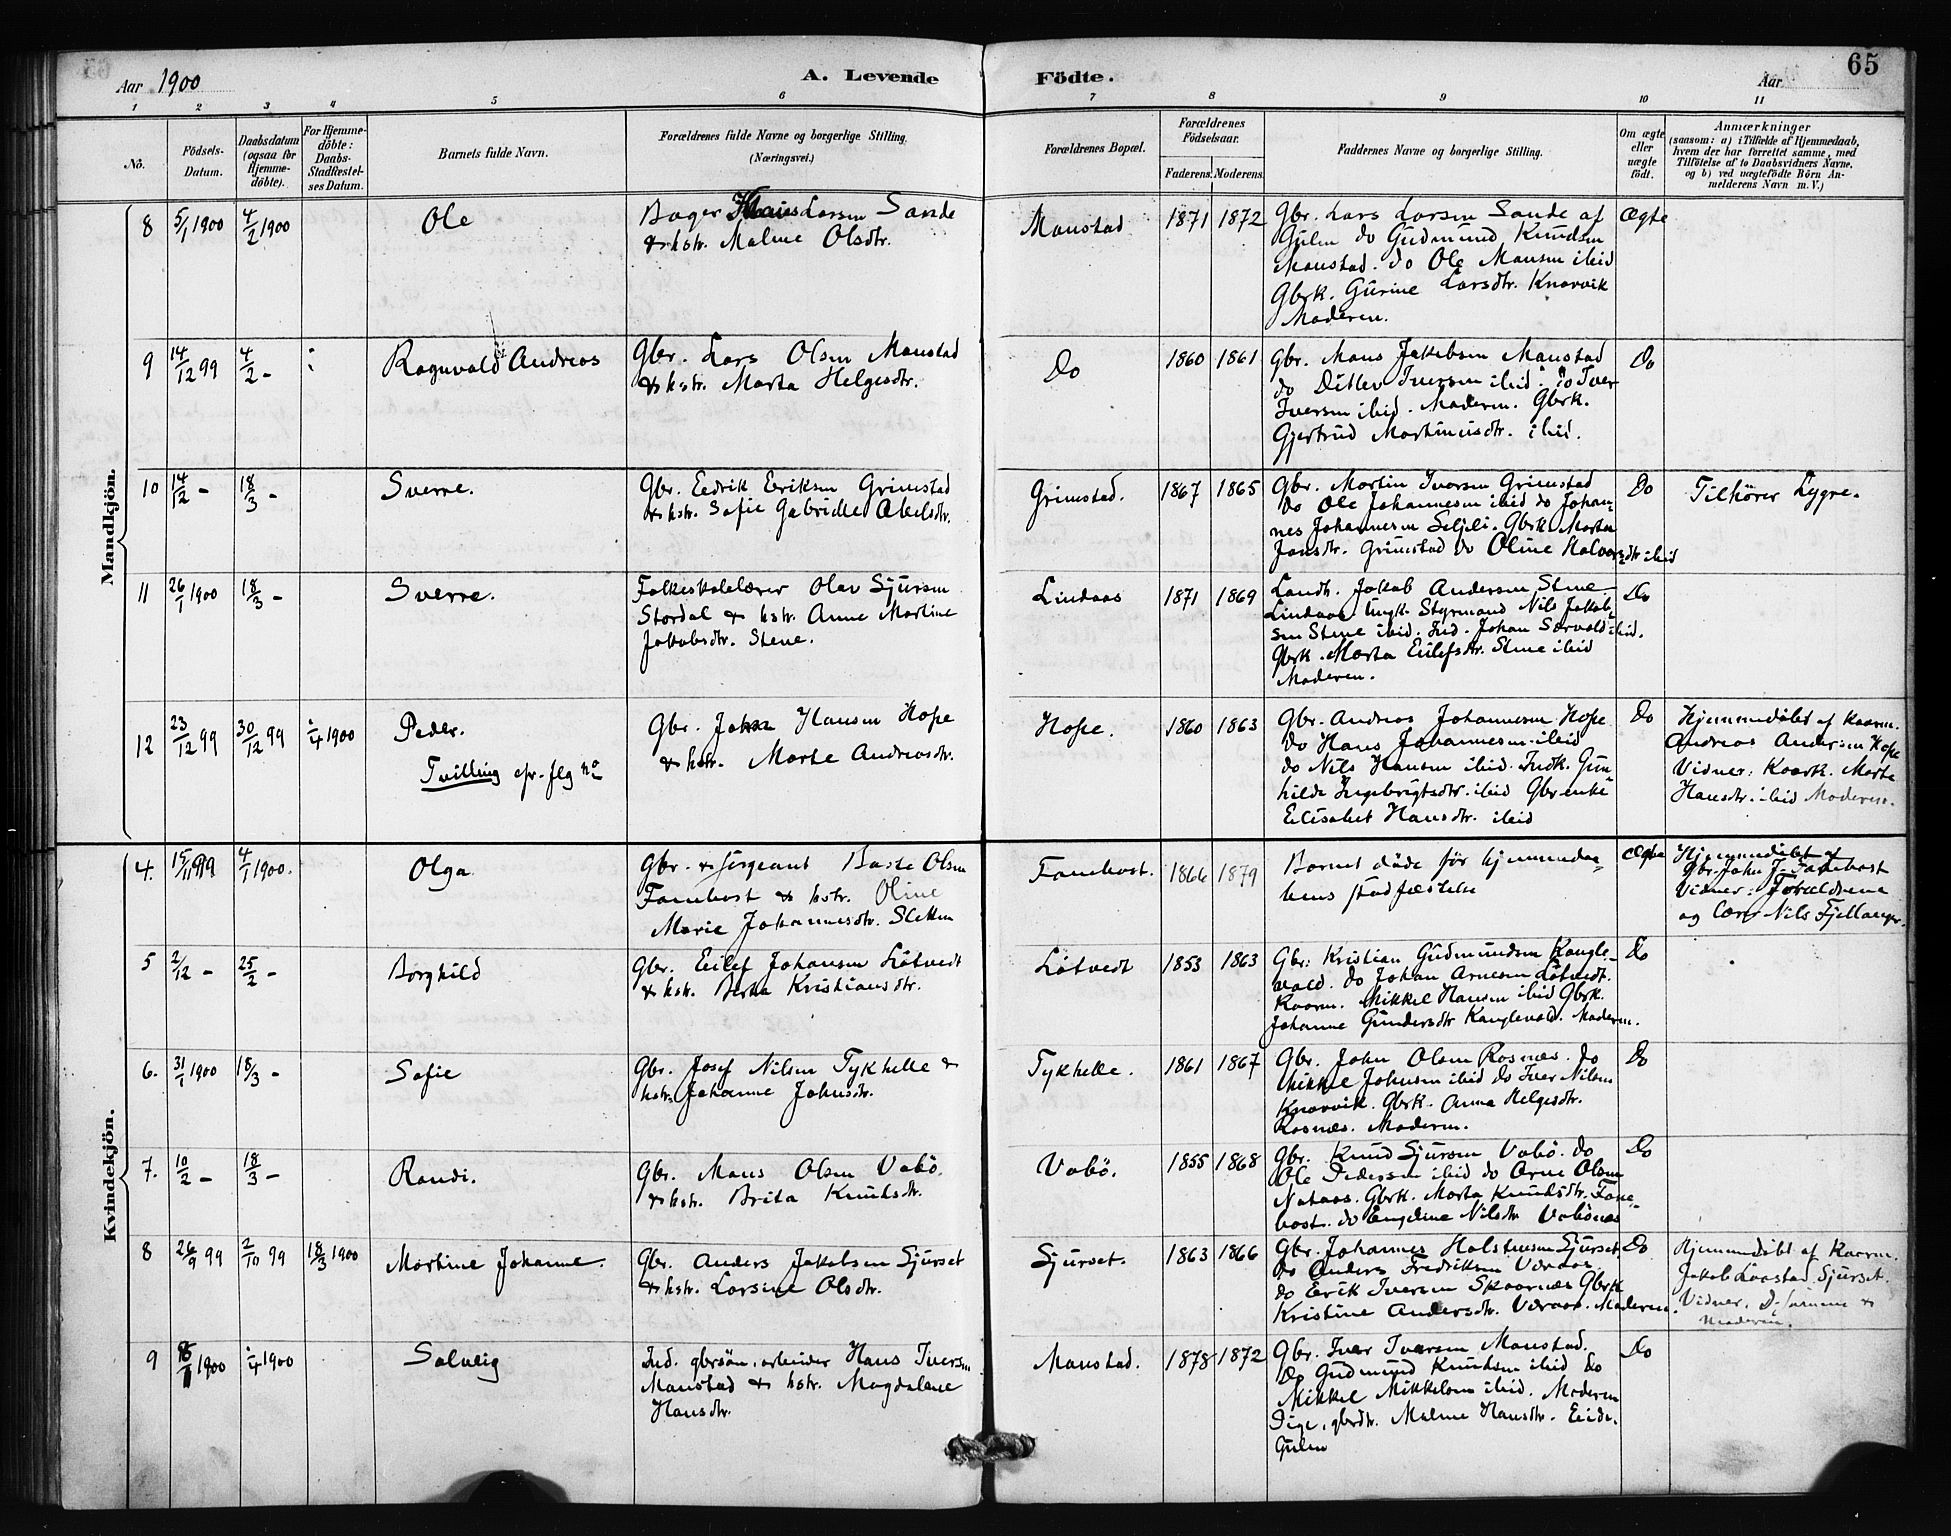 65
Aar 1900
A. Levende Födte.
Aar
1 2 3 4 5 6 7 8 9 10 11
No.
Födsels-Datum.
Daabsdatum (ogsaa for Hjemme-döbte).
For Hjemme-döbte: Daabs-Stadfæstel-ses Datum.
Barnets fulde Navn.
Forældrenes fulde Navne og borgerlige Stilling.
(Næringsvei.)
Forældrenes Bopæl.
Forældrenes Födselsaar.
Faderens. Moderens.
Faddernes Navne og borgerlige Stilling.
Om ægte eller uægte födt.
Anmærkninger
(saasom: a) i Tilfælde af Hjemmedaab,
hvem der har forrettet samme, med
Tilföielse af to Daabsvidners Navne,
og b) ved uægtefödte Börn An-
melderens Navn m. V.)
Mandkjön.
8 5/1 1900 4/2 1900 Ole
Larsen Sande
& hstr. Malene Olsdtr.
Manstad 1871 1872
Gbr. Lars Larsen Sande af
Gulen do Gudmund Knudsen
Manstad. do Ole Mansen ibid
Gbrk. Gurine Larsdtr. Knarvik
Moderen.
Ægte
9 14/12 99 4/2 - Ragnvald Andreas
Gbr. Lars Olsen Manstad
& hstr. Marta Helgesdtr.
Do 1860 1861
Gbr. Mans Jakobsen Manstad
do Ditlev Iversen ibid. do Iver
Iversen ibid. Moderen. Gbrk.
Gjertrud Martinusdtr. ibid.
Do
10 14/12 - 18/3 - Sverre.
Gbr. Edrik Eriksen Grimstad
& hstr. Sofie Gabrielle Abelsdtr.
Grimstad. 1867 1865
Gbr. Martin Iversen Grimstad
do Ole Johannesen ibid do Johan-
nes Johannesen Seljeli. Gbrk. Marta
Jansdtr. Grimstad do Oline Halvorsdtr ibid
Do
Tilhører Lygre.
11 26/1 1900 18/3 - Sverre.
Folkeskolelærer Olav Sjursen
Stordal & hstr. Anne Martine
Jakobsdtr. Stene.
Lindaas 1871 1869
Landh. Jakob Andersen Stene
Lindaas Ungk. Styrmand Nils Jakob-
sen Stene ibid. Ind. Johan Sørvald ibid.
Gbrk. Marta Eilefsdtr. Stene ibid
Moderen.
Do
12 23/12 99 30/12 99 1/4 1900 Peder.
Tvilling cfr. flg no
Gbr. Johan Hansen Hope
& hstr. Marte Andreasdtr.
Hope. 1860 1863
Gbr. Andreas Johannesen Hope
do Hans Johannesen ibid
do Nils Hansen ibid. Indk. Gun-
hilde Ingebrigtsdtr. ibid Gbrenke
Elisabet Hansdtr. ibid
Do
Hjemmedöbt af Kaarm.
Andreas Andersen Hope
Vidner: Kaark. Marta
Hansdtr. ibid Moderen.
Kvindekjön.
4. 15/11 99 4/1 1900. Olga
Gbr. & sergeant Baste Olsen
Fanebost & hstr. Oline
Marie Johannesdtr. Sletten
Fanebost. 1866 1879
Barnet döde för hjemmedaa-
bens stadfæstelse
Ægte
Hjemmedöbt af
Gbr. John J. Fanebost
Vidner: Forældrene
og Nils Fjellanger.
5 2/12 - 25/2 - Borghild
Gbr. Eilef Johansen Lötvedt
& hstr. Berta Kristiansdtr.
Lötvedt 1853 1863
Gbr. Kristian Gudmundsen Kangle-
vald. do Johan Arnesen Lötvedt.
Kaarm. Mikkel Hansen ibid Gbrk.
Johanne Gundersdtr Kanglevald. Moderen.
Do
6. 31/1 1900 18/3 - Sofie
Gbr. Josef Nilsen Tykhelle &
hstr. Johanne Johnsdtr.
Tykhelle. 1861 1867
Gbr. John Olsen Rosnæs. do
Mikkel Johnsen ibid do Iver Nilsen
Knarvik. Gbrk. Anna Helgesdtr.
Rosnæs. Moderen.
Do
7. 10/2 - 18/3 - Randi.
Gbr. Mans Olsen Vabö.
& hstr. Brita Knudsdtr.
Vabö. 1855 1868
Gbr. Knud Sjursen Vabö. do
Ole Pedersen ibid do Arne Olsen
Nataas. Gbrk. Marta Knudsdtr. Fane-
bost. do Engeline Nilsdtr Vabönes
Do
8 26/9 99 2/10 99 18/3 1900 Martine Johanne.
Gbr. Anders Jakobsen Sjurset
& hstr. Larsine Olsdtr.
Sjurset. 1863 1866
Gbr. Johannes Holstensen Sjurset
do Anders Fredriksen Veraas.
do Erik Iversen Skaarnæs Gbrk
Kristine Andersdtr. Veraas. Moderen.
Do
Hjemmedöbt af Kaarm.
Jakob Sjurset.
Vidner,
Moderen.
9 1900 1/4 1900 Solveig
Ind. gbrsön, arbeider Hans Iversen
Manstad & hstr. Magdalene
Hansdtr.
Manstad. 1878 1872
Gbr. Iver Iversen Manstad.
Do Gudmund Knudsen ibid do
Mikkel Mikkelsen ibid. Moderen
Pige, gbrdtr. Malene Hansdtr. Eide.
Gulen
Do